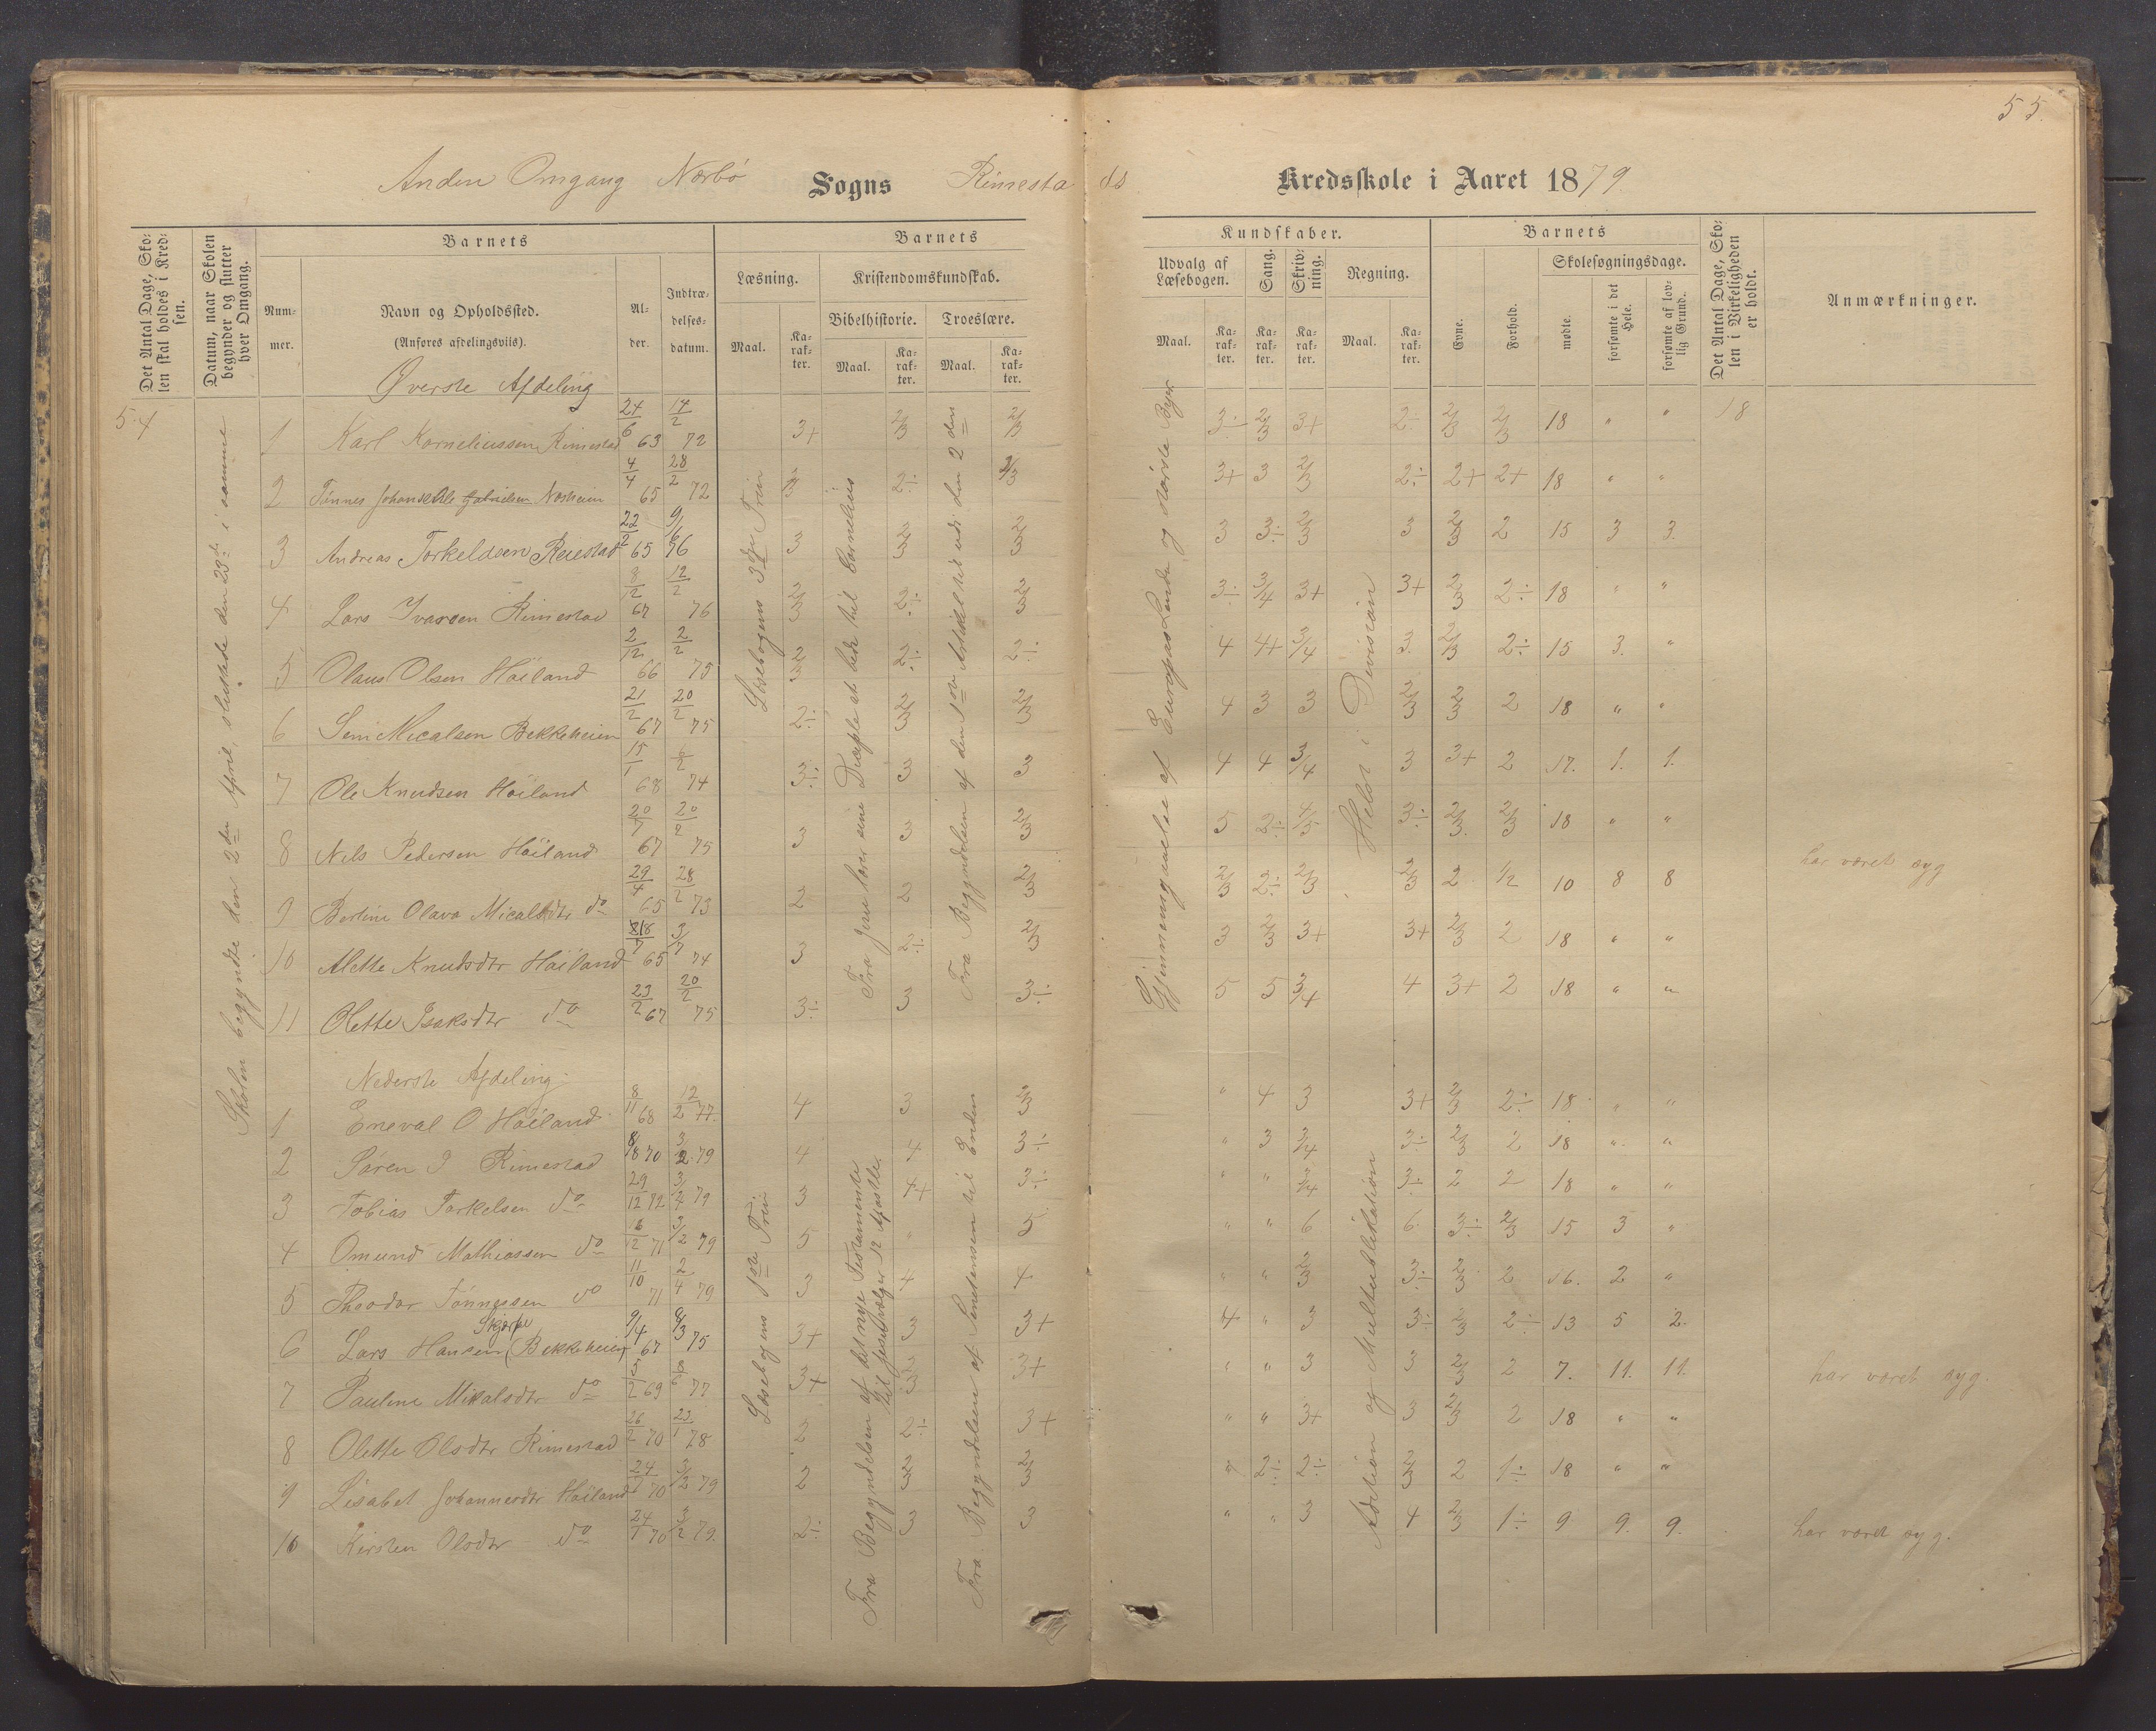 55.
Anden Omgang Nærbø Sogns Rimestads Kredsskole i Aaret 1879
Det Antal Dage, Skolen skal holdes i Kredsen.
Datum, naar Skolen begynder og slutter hver Omgang.
Barnets
Nummer.
Navn og Opholdssted.
(Anføres afdelingsvils).
Alder.
Indtrædelses-datum.
Barnets Kundskaber.
Læsning.
Maal.
Karakter.
Kristendomskundskab.
Bibelhistorie.
Maal.
Karakter.
Troeslære.
Maal.
Karakter.
Udvalg af Læsebogen.
Maal.
Karakter.
Sang.
Karakter.
Skrivning.
Karakter.
Regning.
Maal.
Karakter.
Barnets
Evne.
Forhold.
Skolesøgningsdage.
mødte.
forsømte i det Hele.
forsømte af lovlig Grund.
Det Antal Dage, Skolen i Virkeligheden er holdt.
Anmærkninger.
54
Skolen begyndte den 2den April, sluttede den 23de i samme
Øverste Afdeling
Læsebogens 3die Trin
Fra Jesus lærer sine Disciple at bede til Cornelius
Fra Begyndelsen af den 1ste Artikel til ud i den 2den
Gjennemgaaelse af Europas Lande og største Byer
Helst i Division
18
1 Karl Korneliussen Rimestad 24/6 63 14/2 72 3+ 2/3 2/3 3÷ 2/3 3+ 2÷ 2/3 2/3 18 " "
2 Tønnes Johans Nærheim 4/4 65 28/2 72 2÷ 2/3 3+ 3 2/3 2÷ 2+ 2+ 18 " "
3 Andreas Torkeldsen Reiestad 22/2 65 9/6 76 3 2/3 2/3 3 3÷ 2/3 3 2/3 2 15 3 3.
4 Lars Ivarsen Rimestad 8/12 67 12/2 76 2/3 2÷ 2/3 3÷ 3/4 3+ 3+ 2/3 2÷ 18 " "
5 Olaus Olsen Höiland 2/12 66 2/2 75 2/3 2÷ 2÷ 4 4+ 3/4 3. 2/3 2÷ 15 3. "
6 Semi Micalsen Bekkeheien 21/2 67 20/2 75 2÷ 2/3 2/3 4 3 3 2/3 2/3 2 18 " "
7 Ole Knudsen Höiland 15/1 68 6/2 74 3÷ 3 3 4 4 3/4 3 3+ 2 17. 1. 1.
8 Nils Pedersen Höiland 20/7 67 20/2 75 3 3 2/3 5 2÷ 4/5 3÷ 2/3 2/3 18 " "
9 Bertine Olava Micalsdtr do 29/4 65 28/2 73 2 2 2/3 2/3 2÷ 2/3 2/3 2 1/2 10 8 8 har været syg
10 Alette Knudsdtr Höiland 65 3/7 74 3 2÷ 2/3 3 2/3 3+ 3+ 2/3 2 18 " "
11 Olette Isaksdtr do 23/2 67 20/2 75 3÷ 3 3÷ 5 5 3/4 4 3+ 2 18 " "
Nederste Afdeling
Læsebogens 1ste Trin
Fra Begyndelsen af det nye Testamente til Jesus vælger 12 Apostle.
Fra Begyndelsen af Sendensen til Enden
Adition og Multiplikation
1 Eneval O Höiland 8/11 68 12/2 77. 4 3 2/3 " 4 3 3+ 2/3 2÷ 18 " "
2 Sören I Rimestad 8/18 70 3/2 79 4 4 3÷ " 3 3/4 3÷ 2/3 2 18 " "
3 Tobias Torkelsen do 29/12 72 3/2 79 3 4+ 3÷ " " 3/4 3÷ 2 2 18 " "
4 Omund Mathiassen do 16/12 71 3/2 79 5 " 5 " " 6 6 3÷ 2/3 15 3 "
5 Theodor Tönnessen do 11/10 71 2/4 79 3 4 4 " " 2/3 3÷ 2/3 2 16. 2 "
6 Lars Hansen Skjærpe (Bekkeheien) 9/4 67 8/3 75 3+ 3 3+ 4 " 3 3÷ 2/3 2÷ 13 5 2
7 Pauline Mikalsdtr do 5/2 69 77 3+ 2/3 3+ " " 3 3 2/3 2 7. 11. 11. har været syg.
8 Olette Olsdtr Rimestad 26/2 70 23/1 78 2 2÷ 3+ " " 3+ 3 2/3 2 18 " "
9 Lisabet Johannesdtr Höiland 24/7 70 3/2 79 2 2/3 2/3 " 2÷ 2÷ 2/3 2 1÷ 18 " "
10 Kirsten Olsdtr do 24/1 70 3/2 79. 2÷ 3 3 " " 3 4 2/3 1÷ 9 9. 9. har været syg.